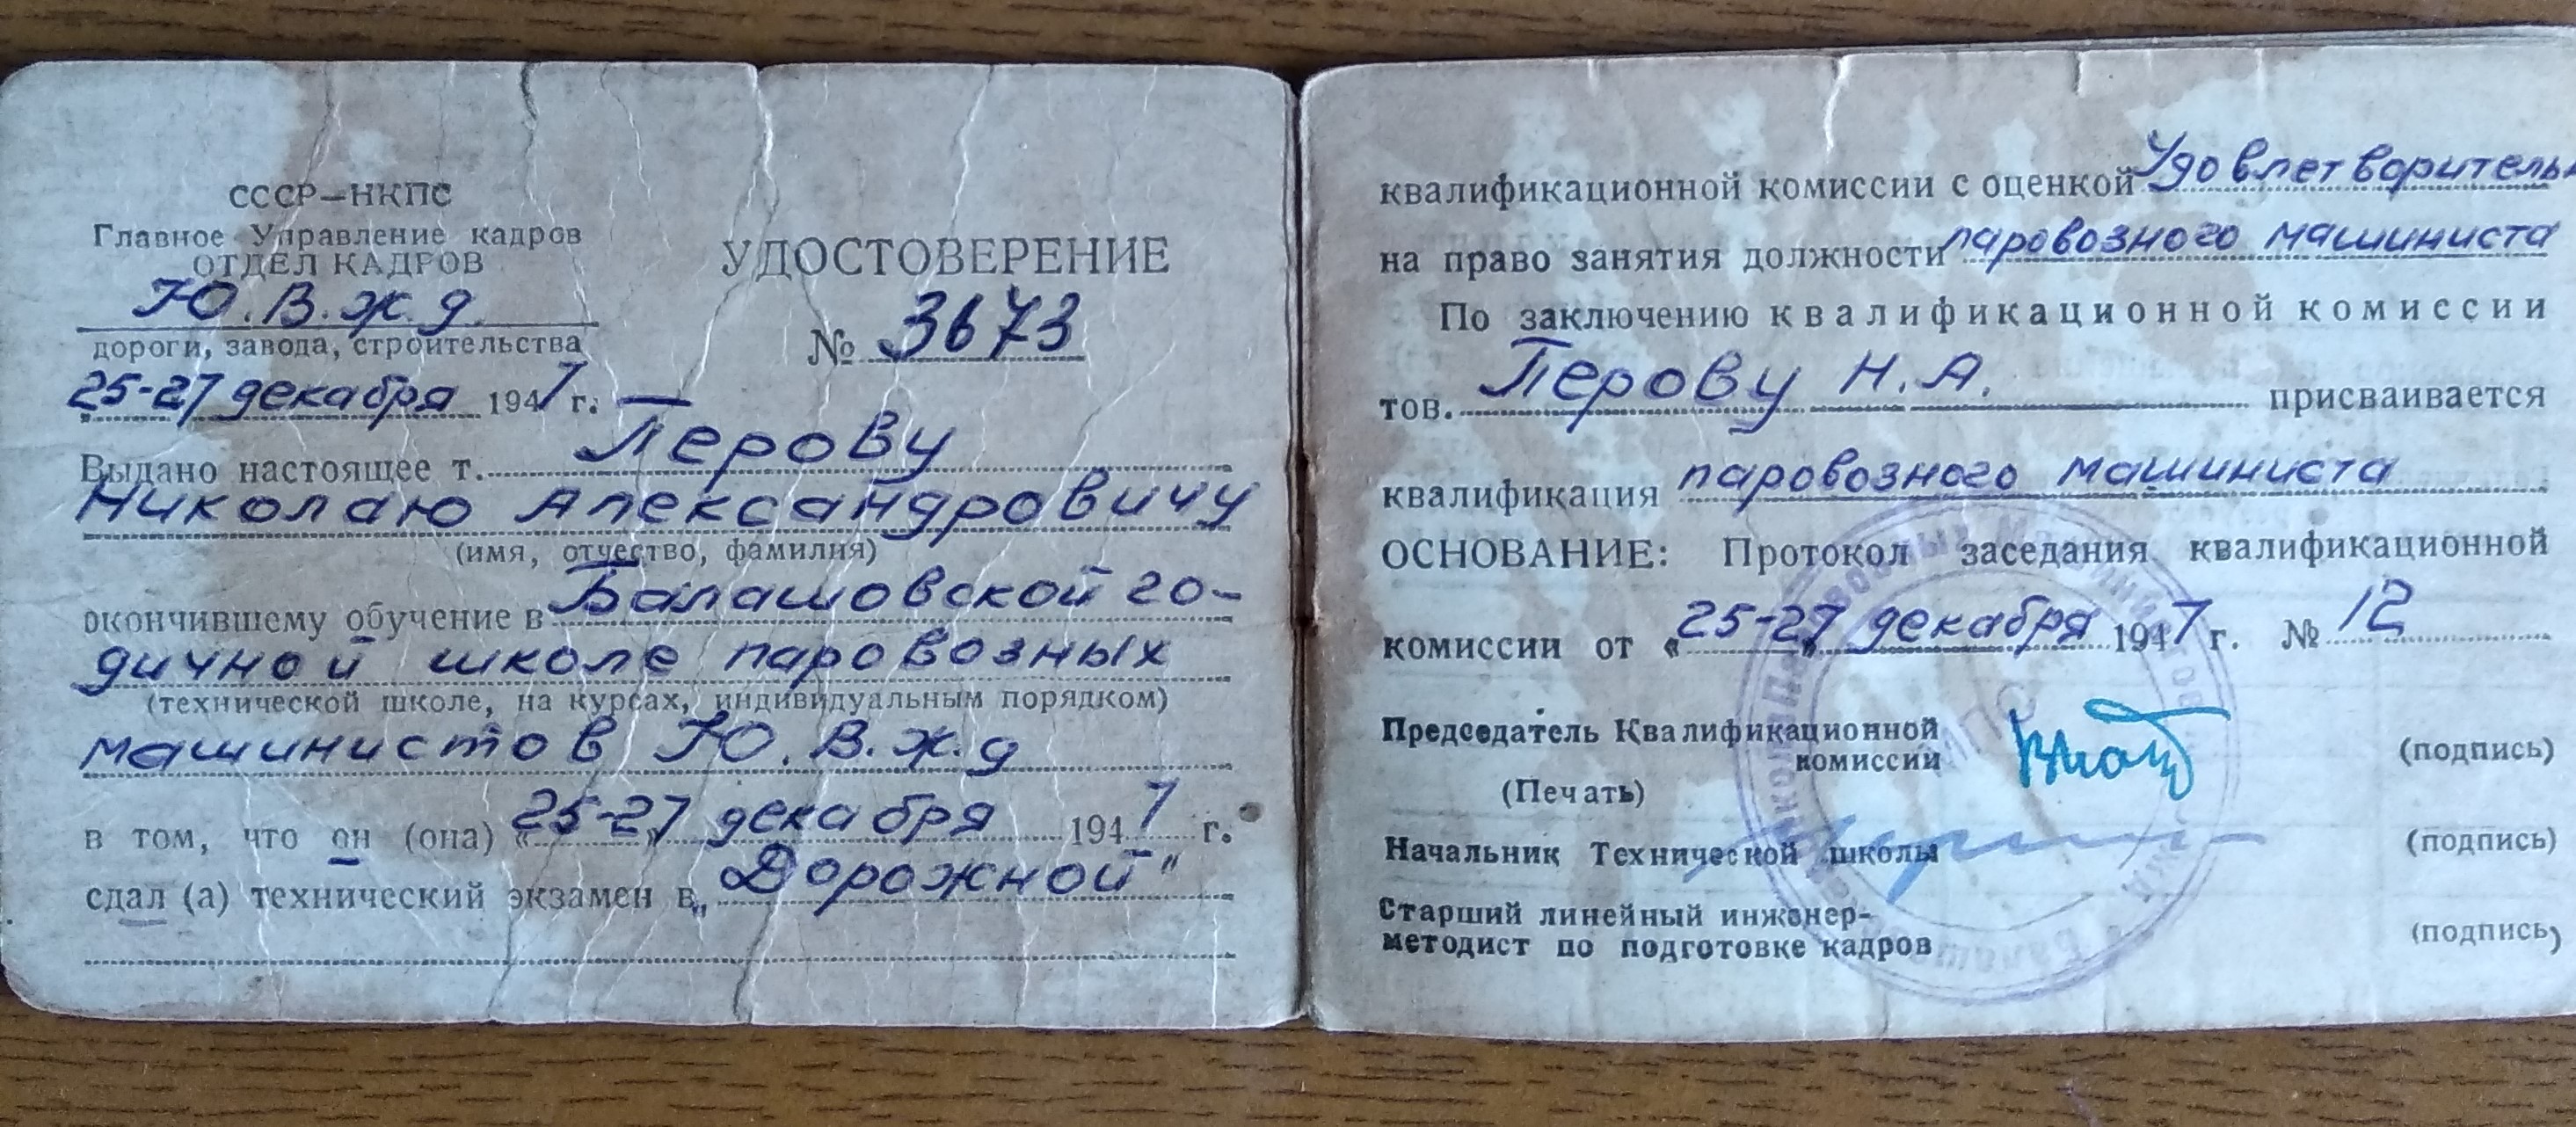 СССР—НКПС
Главное Управление кадров
ОТДЕЛ КАДРОВ
Ю.В.ж.д.
дороги, завода, строительства
25-27 декабря 1947 г.
УДОСТОВЕРЕНИЕ
№ 3673
Выдано настоящее т. Перову
Николаю Александровичу
(имя, отчество, фамилия)
окончившему обучение в Балашовской го-
дичной школе паровозных
(технической школе, на курсах, индивидуальным порядком)
машинистов Ю.В.ж.д
в том, что он (она) «25-27» декабря 1947 г.
сдал (а) технический экзамен в „Дорожной"
квалификационной комиссии с оценкой Удовлетворительн
на право занятия должности паровозного машиниста
По заключению квалификационной комиссии
тов. Перову Н.А. присваивается
квалификация паровозного машиниста
ОСНОВАНИЕ: Протокол заседания квалификационной
комиссии от «25-27» декабря 1947 г. № 12
Председатель Квалификационной
комиссии (подпись)
(Печать)
Начальник Технической школы (подпись)
Старший линейный инженер-
методист по подготовке кадров (подпись)